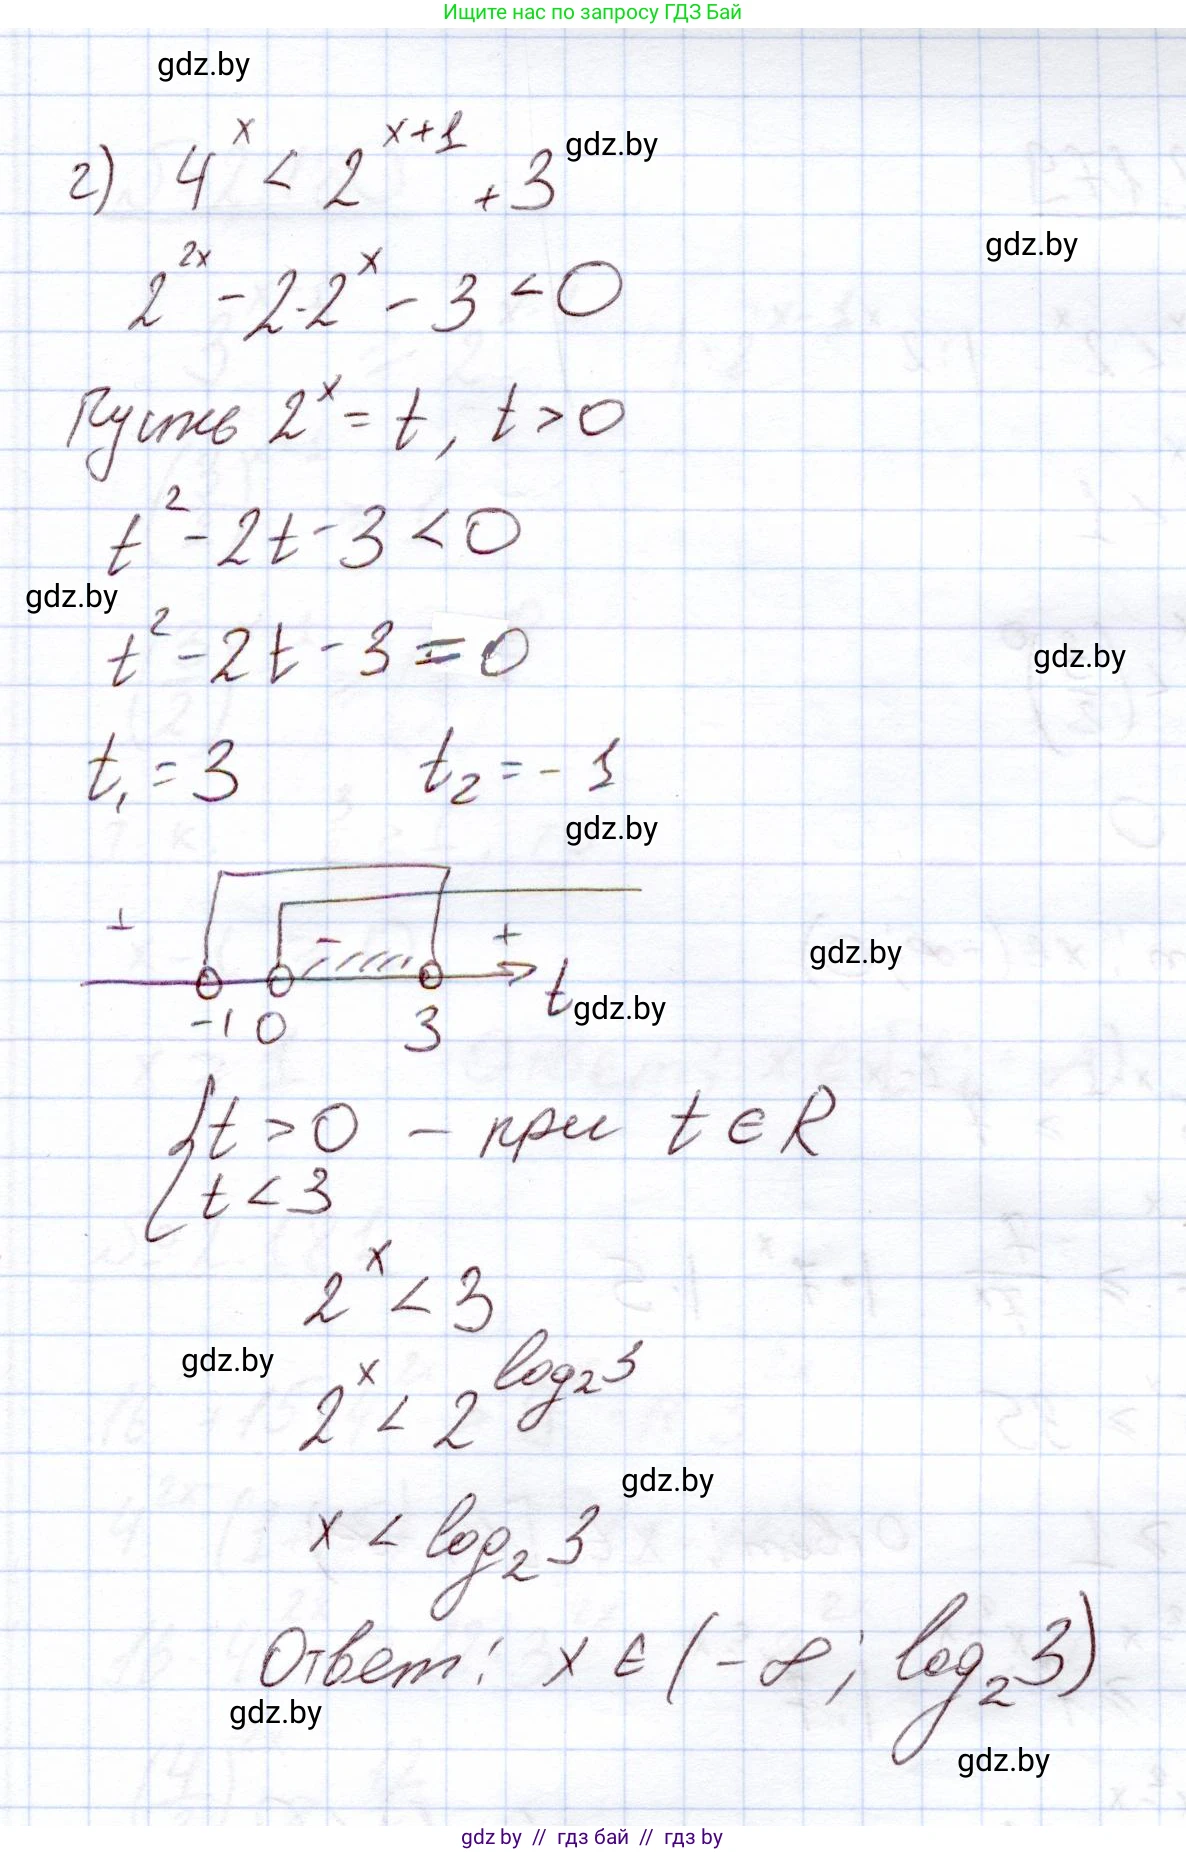 Ищите нас по запросу ГДЗ Бай
gdz.by
г) 4^x < 2^{x+1} + 3
gdz.by
gdz.by
2^{2x} - 2·2^x - 3 < 0
Пусть 2^x = t, t > 0
t^2 - 2t - 3 < 0
gdz.by
t^2 - 2t - 3 = 0
gdz.by
t_1 = 3 t_2 = -1
gdz.by
+ - +
gdz.by
t
gdz.by
-1 0 3
{ t > 0 – при t ∈ R
t < 3
2^x < 3
gdz.by
2^x < 2^{log_2 3}
gdz.by
x < log_2 3
Ответ: x ∈ (-∞; log_2 3)
gdz.by
gdz.by
gdz by // гдз бай // гдз by